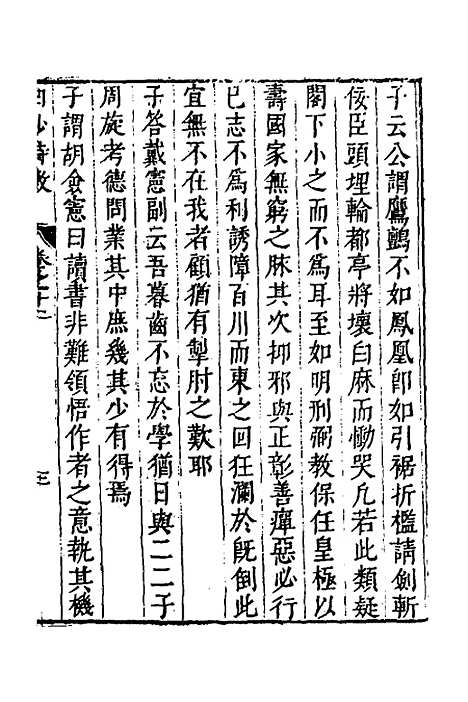 子云公謂鷹鸇不如鳳凰郎如引裾折檻請劍斬
佞臣頭埋輪都亭將壞白麻而慟哭凡若此類疑
閣下小之而不爲耳至如明刑弼教保任皇極以
壽國家無窮之脉其次抑邪與正彰善癉惡必行
已志不爲利誘障百川而東之回狂瀾於旣倒此
宜無不在我者顧猶有掣肘之歎耶
子答戴憲副云吾暮齒不忘於學猶日與二二子
周旋考德問業其中庶幾其少有得焉
子謂胡僉憲曰讀書非難領悟作者之意執其機
白沙詩教
卷之十
三